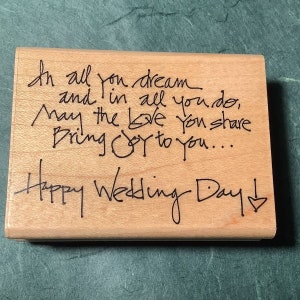 In all you dream
and in all you do,
May the love you share
Bring Joy to you...
Happy Wedding Day!